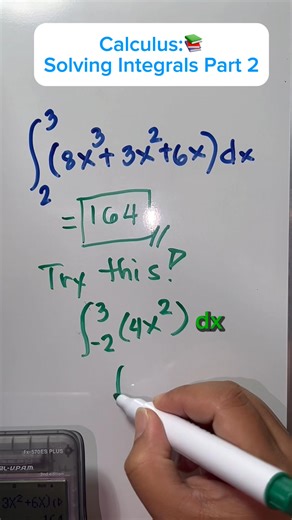 Calculus:📚
Solving Integrals Part 2
∫₂³ (8x³+3x²+6x)dx
= 164 //
Try this!
∫₋₂³ (4x²) dx
fx-570ES PLUS
3X²+6X)(D
164